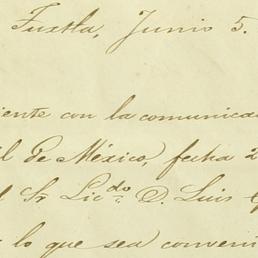 Tuxtla, Junio 5.
iente con la comunica
il de México, fecha 2
l Sr Licdo. D. Luis
lo que sea conveni